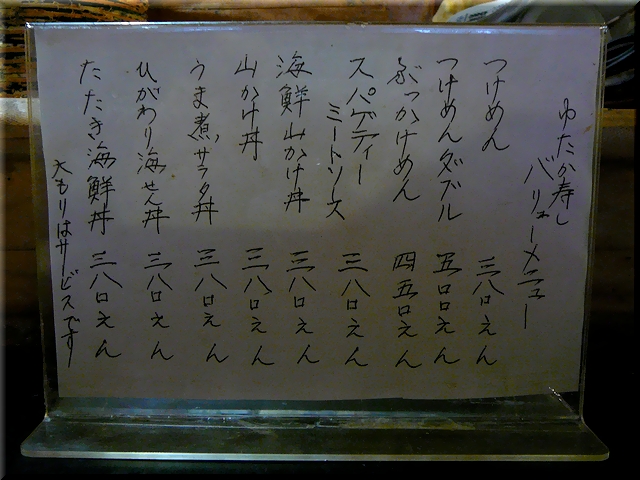 ゆたか寿し
バリューメニュー
つけめん 三八〇えん
つけめんダブル 五〇〇えん
ぶっかけめん 四五〇えん
スパゲティー
ミートソース 三八〇えん
海鮮山かけ丼 三八〇えん
山かけ丼 三八〇えん
うま煮サラダ丼 三八〇えん
ひがわり海せん丼 三八〇えん
たたき海鮮丼 三八〇えん
大もりはサービスです!